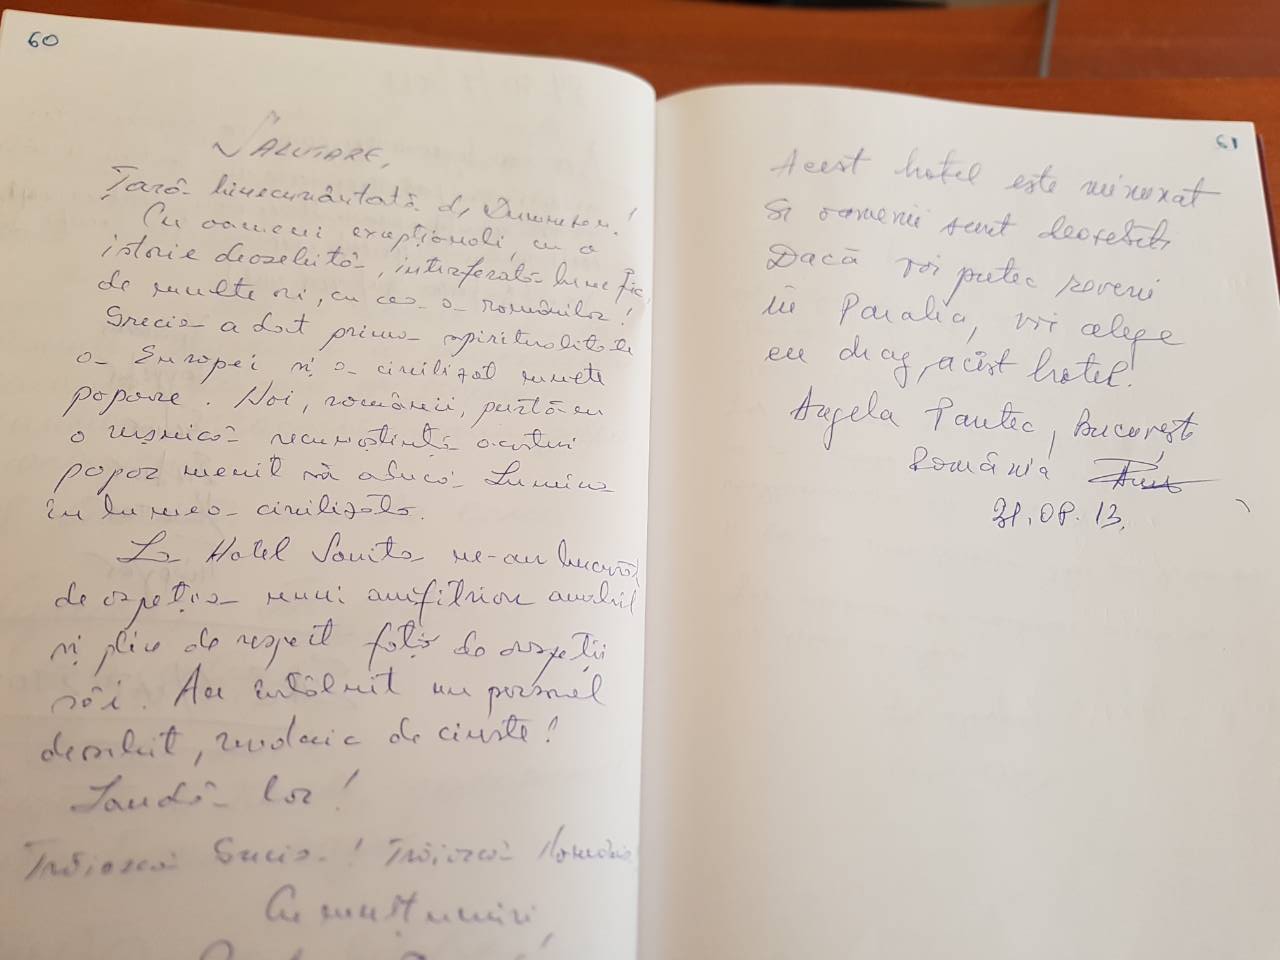 60
SALUTARE,
Țară binecuvântată de Dumnezeu!
Cu oameni excepționali, cu o
istorie deosebită, interferată bine fie,
de multe ori, cu cea a românilor!
Grecia a dat prima spiritualitate
a Europei și a civilizat multe
popoare. Noi, românii, purtăm
o veșnică recunoștință acestui
popor menit să aducă Lumina
în lumea civilizată.
La Hotel Sonita ne-am bucurat
de ospeția unui amfitrion amabil
și plin de respect față de oaspeții
săi. Am întâlnit un personal
deosebit, modaic de cinste!
Laudă lor!
Trăiască Grecia! Trăiască România
Cu mulțumiri,
61
Acest hotel este minunat
Si oamenii sunt deosebiti
Dacă voi putea reveni
în Paralia, voi alege
cu drag, acest hotel.
Angela Pantec, București
România
31.08.13.